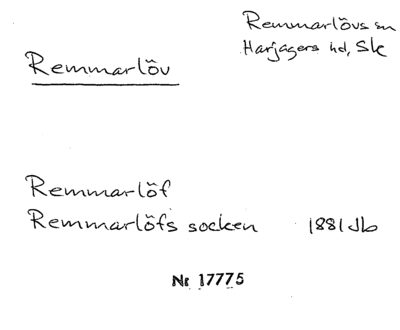 Remmarlövs sn
Harjagers hd, Sk
Remmarlöv
Remmarlöf
Remmarlöfs socken 1881 Jb
Nr 17775